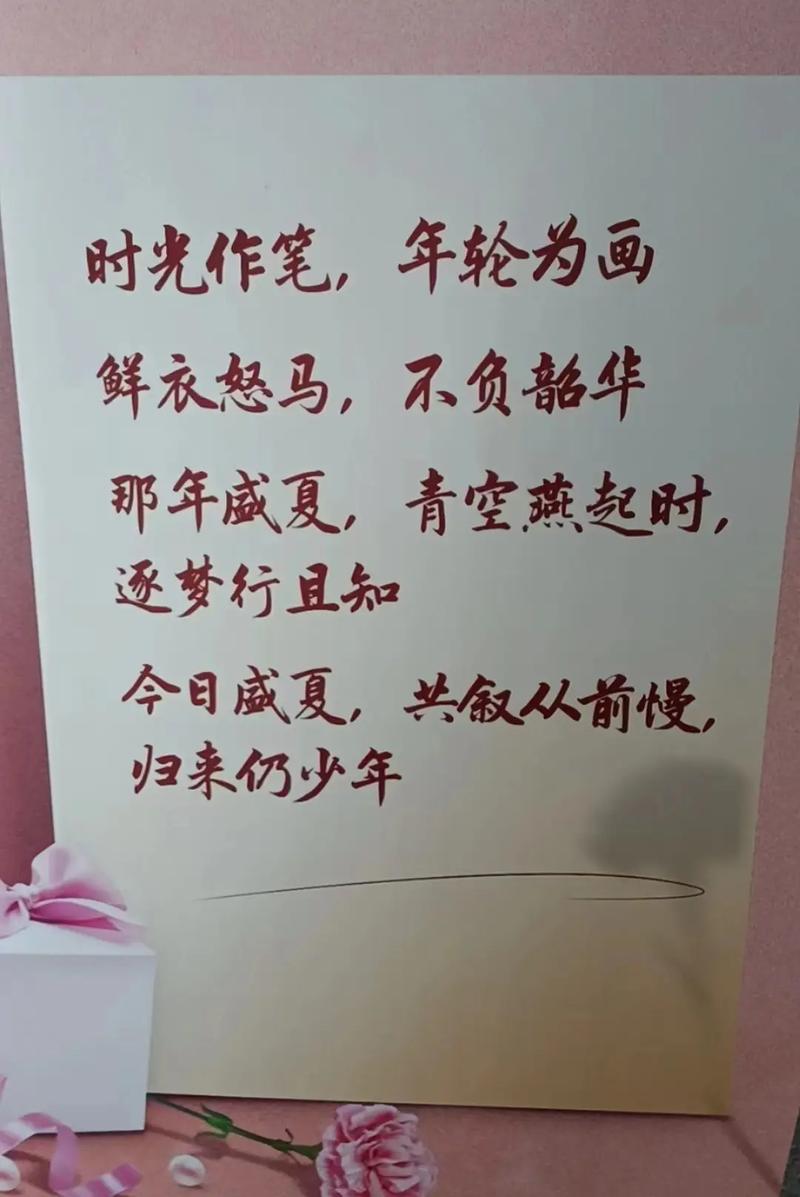 时光作笔，年轮为画
鲜衣怒马，不负韶华
那年盛夏，青空燕起时，
逐梦行且知
今日盛夏，共叙从前慢，
归来仍少年